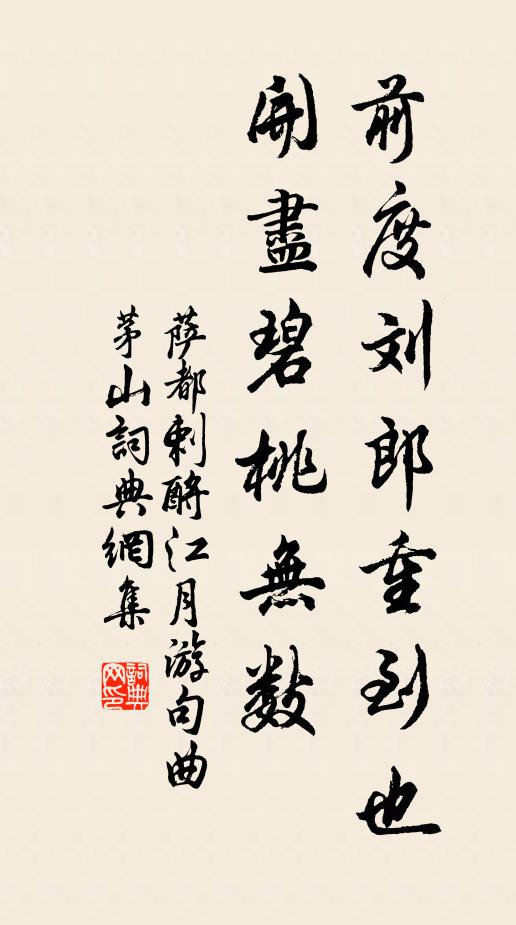 前度刘郎重到也
開盡碧桃無数
萨都刺酹江月游句曲
茅山詞典網集
詞典网印